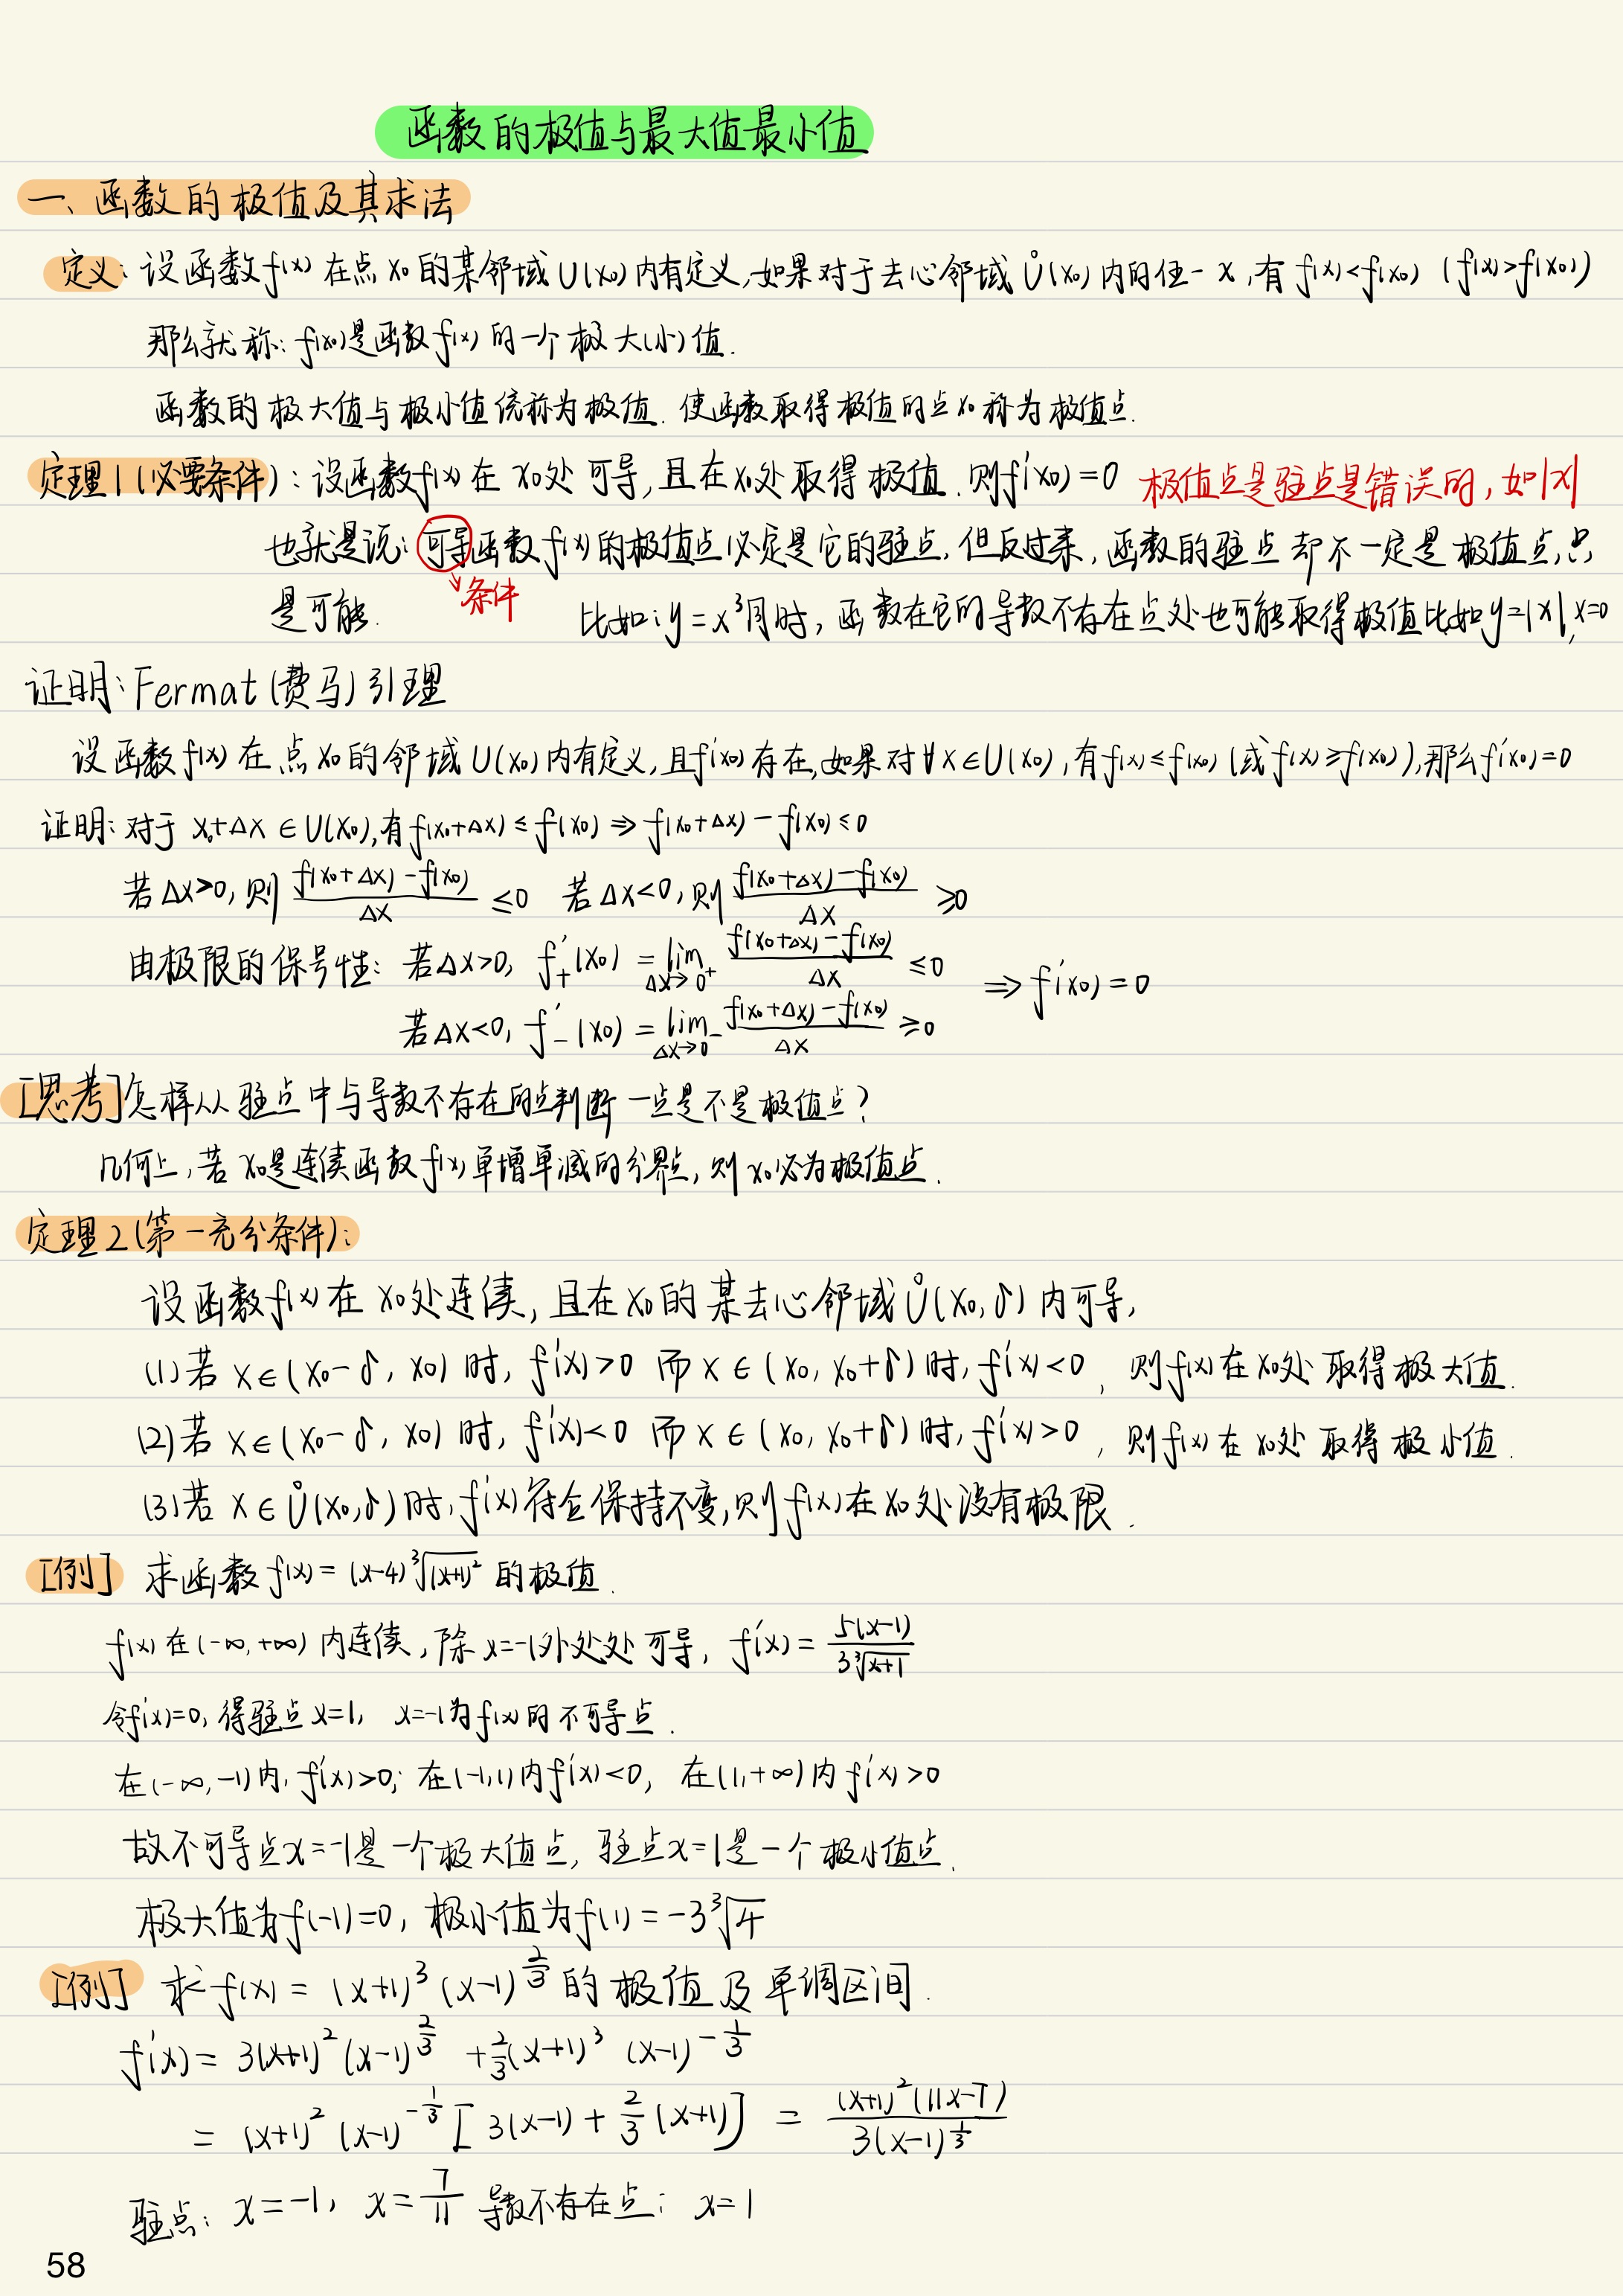 函数的极值与最大值最小值
一、函数的极值及其求法
定义：设函数f(x)在点x₀的某邻域U(x₀)内有定义,如果对于去心邻域Ů(x₀)内的任一x,有f(x)<f(x₀) (f(x)>f(x₀))
那么就称：f(x₀)是函数f(x)的一个极大(小)值.
函数的极大值与极小值统称为极值. 使函数取得极值的点x₀称为极值点.
定理1(必要条件)：设函数f(x)在x₀处可导,且在x₀处取得极值.则f'(x₀)=0 极值点是驻点是错误的,如|x|
也就是说：可导函数f(x)的极值点必定是它的驻点,但反过来,函数的驻点却不一定是极值点,只
是可能. 条件 比如：y=x³ 同时,函数在它的导数不存在点处也可能取得极值比如y=|x|,x=0
证明：Fermat(费马)引理
设函数f(x)在点x₀的邻域U(x₀)内有定义,且f'(x₀)存在,如果对∀x∈U(x₀),有f(x)≤f(x₀)(或f(x)≥f(x₀)),那么f'(x₀)=0
证明：对于x₀+Δx∈U(x₀),有f(x₀+Δx)≤f(x₀)⇒f(x₀+Δx)-f(x₀)≤0
若Δx>0,则 (f(x₀+Δx)-f(x₀))/Δx ≤0 若Δx<0,则 (f(x₀+Δx)-f(x₀))/Δx ≥0
由极限的保号性：若Δx>0, f₊'(x₀)=lim_{Δx→0⁺} (f(x₀+Δx)-f(x₀))/Δx ≤0 ⇒f'(x₀)=0
若Δx<0, f₋'(x₀)=lim_{Δx→0⁻} (f(x₀+Δx)-f(x₀))/Δx ≥0
[思考]怎样从驻点中与导数不存在的点判断一点是不是极值点?
几何上,若x₀是连续函数f(x)单增单减的分界点,则x₀必为极值点.
定理2(第一充分条件)：
设函数f(x)在x₀处连续,且在x₀的某去心邻域Ů(x₀,δ)内可导,
(1)若x∈(x₀-δ,x₀)时,f'(x)>0 而x∈(x₀,x₀+δ)时,f'(x)<0, 则f(x)在x₀处取得极大值.
(2)若x∈(x₀-δ,x₀)时,f'(x)<0 而x∈(x₀,x₀+δ)时,f'(x)>0, 则f(x)在x₀处取得极小值.
(3)若x∈Ů(x₀,δ)时,f'(x)符合保持不变,则f(x)在x₀处没有极限.
[例] 求函数f(x)=(x-4)∛(x+1)² 的极值.
f(x)在(-∞,+∞)内连续,除x=-1外处处可导, f'(x)=5(x-1)/(3∛(x+1))
令f'(x)=0,得驻点x=1, x=-1为f(x)的不可导点.
在(-∞,-1)内,f'(x)>0; 在(-1,1)内f'(x)<0, 在(1,+∞)内f'(x)>0
故不可导点x=-1是一个极大值点,驻点x=1是一个极小值点.
极大值为f(-1)=0, 极小值为f(1)=-3∛4
[例] 求f(x)=(x+1)³(x-1)^(2/3)的极值及单调区间.
f'(x)=3(x+1)²(x-1)^(2/3)+2/3(x+1)³(x-1)^(-1/3)
=(x+1)²(x-1)^(-1/3)[3(x-1)+2/3(x+1)]=(x+1)²(11x-7)/(3(x-1)^(1/3))
驻点：x=-1, x=7/11 导数不存在点：x=1
58